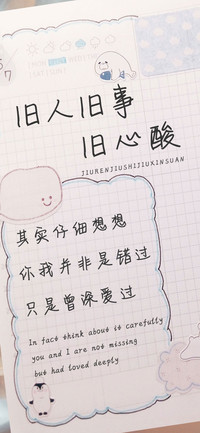 旧人旧事
旧心酸
JIURENJIUSHIJIUXINSUAN
其实仔细想想
你我并非是错过
只是曾深爱过
In fact think about it carefully
you and I are not missing
but had loved deeply